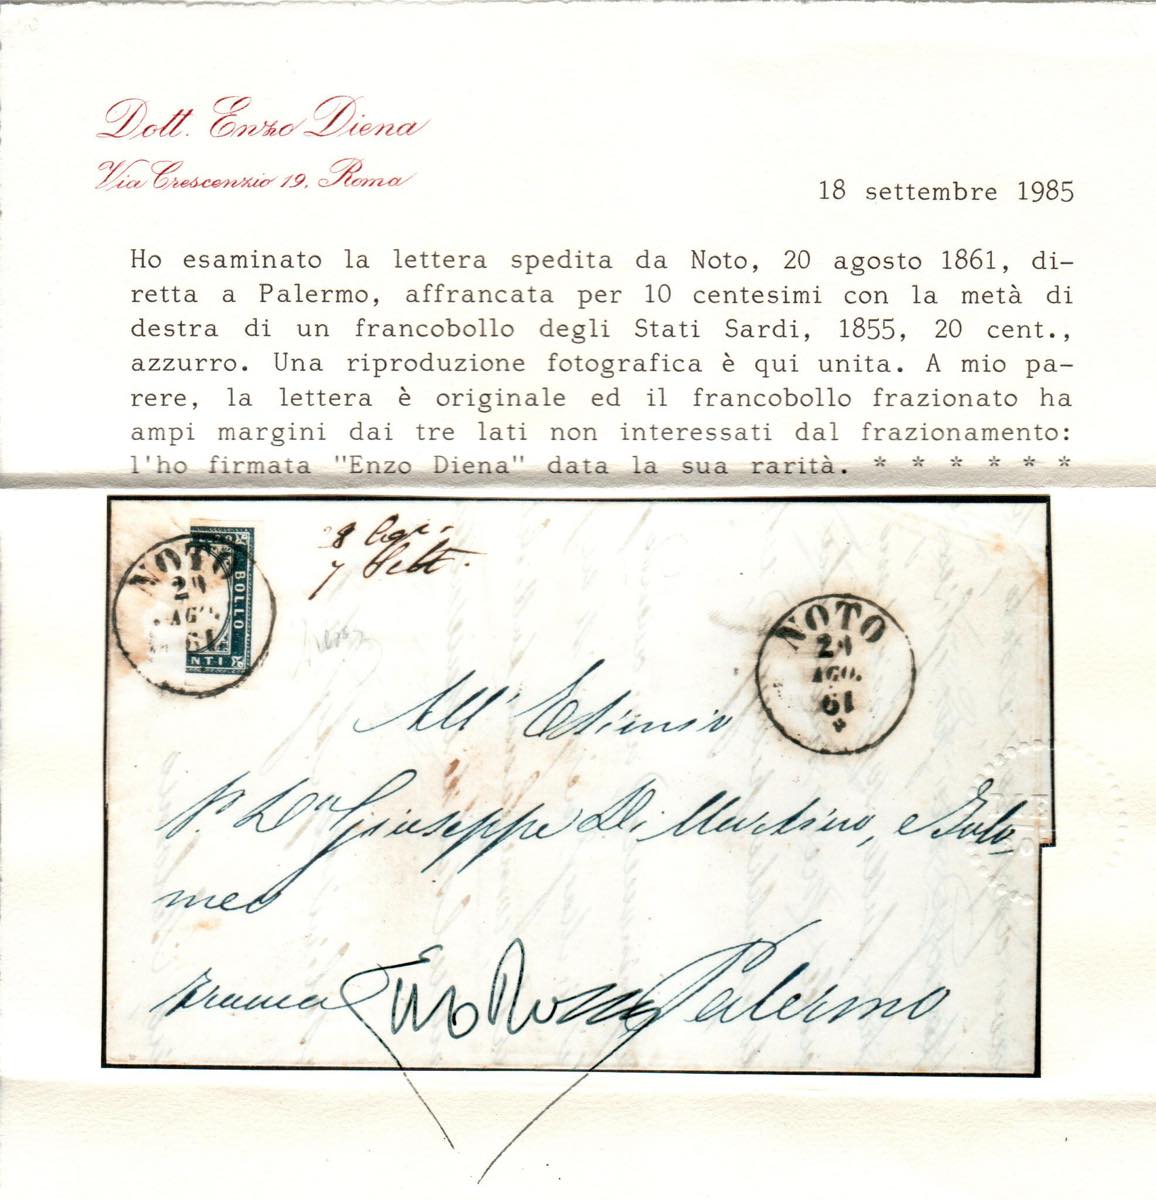 Dott. Enzo Diena
Via Crescenzio 19, Roma
18 settembre 1985
Ho esaminato la lettera spedita da Noto, 20 agosto 1861, di-
retta a Palermo, affrancata per 10 centesimi con la metà di
destra di un francobollo degli Stati Sardi, 1855, 20 cent.,
azzurro. Una riproduzione fotografica è qui unita. A mio pa-
rere, la lettera è originale ed il francobollo frazionato ha
ampi margini dai tre lati non interessati dal frazionamento:
l'ho firmata "Enzo Diena" data la sua rarità. * * * * * *
NOTO
AGO.
61
BOLLO
NTI
7 Sett.
NOTO
AGO.
61
*
All'
Giuseppe Di Martino, e Bolo
meo
Palermo